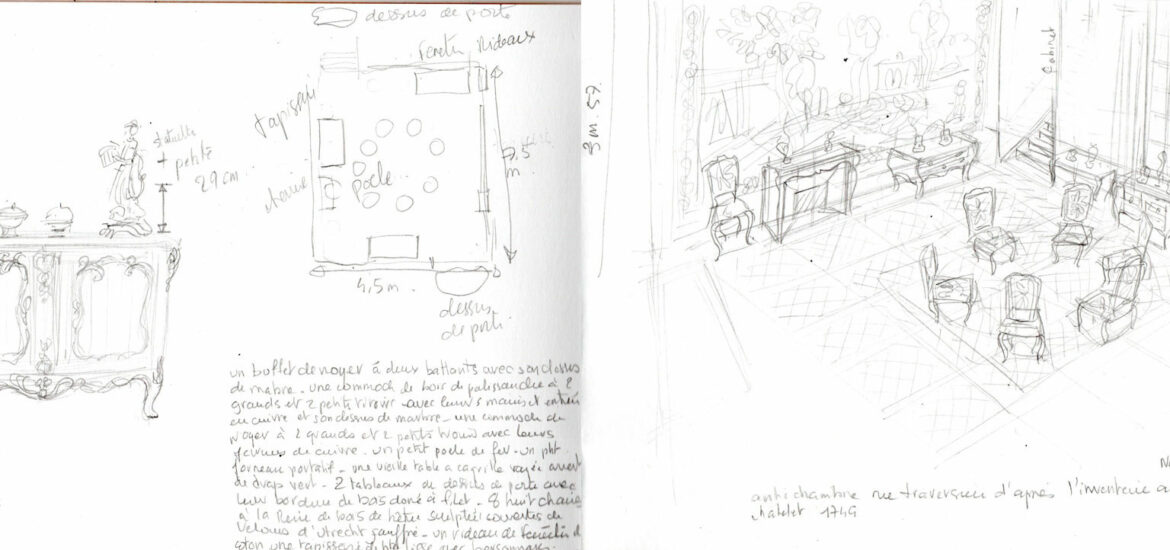 dessus de porte
Rideaux
tapisserie
statuette
petite
29 cm
chaise
poele
m.
4,5 m.
dessus
de porte
un buffet de noyer à deux battants avec son dessus
de mabre - une commode de bois de palissandre à 2
grands et 2 petits tiroirs avec leurs mains et entrées
en cuivre et son dessus de marbre - une commode de
noyer à 2 grands et 2 petits tiroirs avec leurs
de cuivre - un petit poele de fer - un ptit
fourneau portatif - une vieille table a
de drap vert - 2 tableaux de dessus de porte avec
leur bordure de bois doré à filet - 8 huit chaises
à la Reine de bois de hêtre sculptées couvertes de
velours d'utrecht gauffré - un rideau de fenêtre de
coton une tapisserie de avec personnages.
3 m. 57.
Cabinet
antichambre rue traversière d'après l'inventaire
chatelet 1749